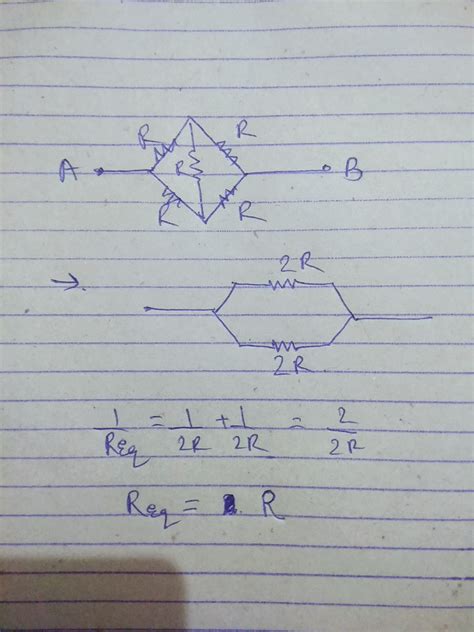 R R
A R B
R R
2R
→
2R
1/Req = 1/2R + 1/2R = 2/2R
Req = R